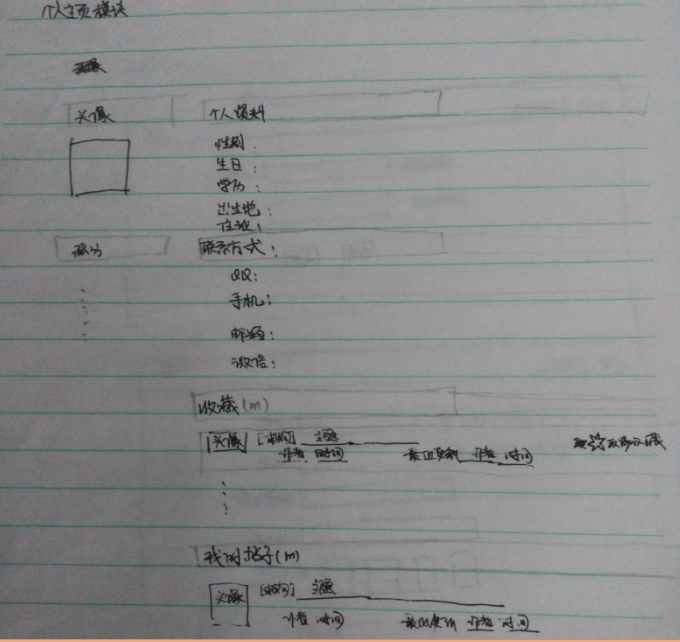 个人主页模块
头像 个人资料
性别:
生日:
学历:
出生地:
住址:
积分 联系方式:
QQ:
手机:
邮箱:
微信:
收藏(m)
头像 主题
作者 时间 最近更新 作者 时间 取消收藏
我的帖子(m)
头像 主题
作者 时间 作者 时间